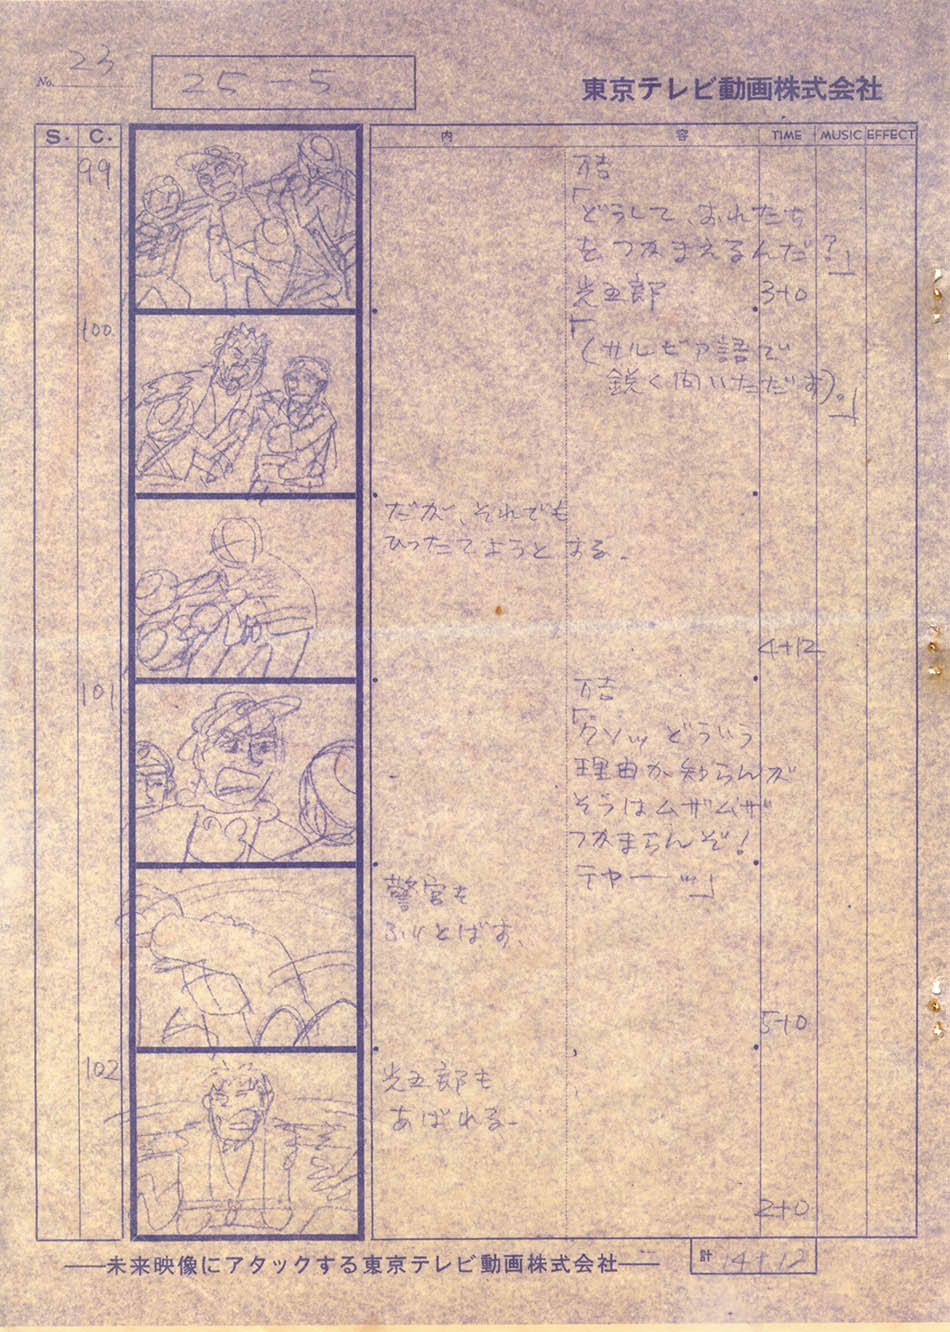 No. 23
25-5
東京テレビ動画株式会社
S. C. 内 容 TIME MUSIC EFFECT
99
万吉
「どうして、おれたち
をつかまえるんだ?」
光五郎 3+0
100
「(サルビア語で
鋭く向いただす)。」
だが、それでも
ひったてようとする。
4+12
101
万吉
「クソッどういう
理由か知らんが
そうはムザムザ
つかまらんぞ!
テヤーッ」
警官を
ふりとばす、
5+0
102
光五郎も
あばれる。
2+0
計 14+12
―未来映像にアタックする東京テレビ動画株式会社―